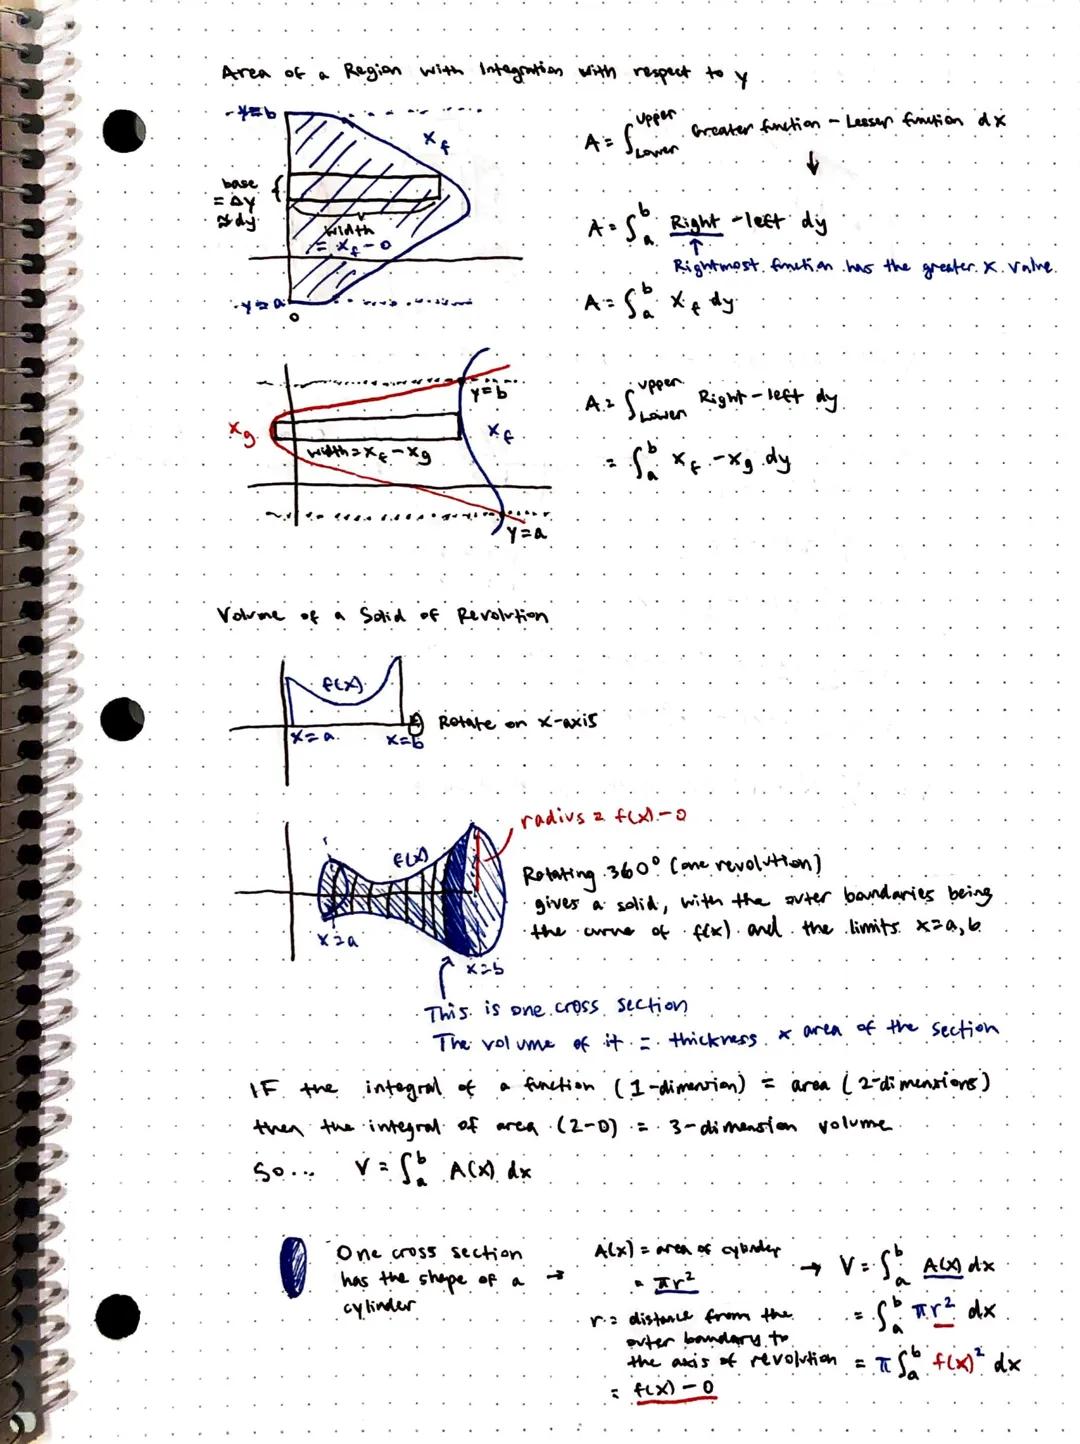 Area of a Region with Integration with respect to y
y=b
x_f
base
= Δy
≈ dy
width
= x_f - 0
y=a
0
A = ∫ Upper Lower Greater function - Lesser function dx
↓
A = ∫_a^b Right - left dy
↑
Rightmost function has the greater x value.
A = ∫_a^b x_f dy
y=b
x_g
x_f
width = x_f - x_g
y=a
A = ∫ Upper Lower Right - left dy
= ∫_a^b x_f - x_g dy
Volume of a Solid of Revolution
f(x)
x=a
x=b
Rotate on x-axis
radius = f(x) - 0
f(x)
x=a
x=b
Rotating 360° (one revolution)
gives a solid, with the outer boundaries being
the curve of f(x) and the limits x=a,b
This is one cross section
The volume of it = thickness × area of the section
IF the integral of a function (1-dimension) = area (2-dimensions)
then the integral of area (2-D) = 3-dimension volume
So... V = ∫_a^b A(x) dx
One cross section
has the shape of a →
cylinder
A(x) = area of cylinder
= πr²
r = distance from the
outer boundary to
the axis of revolution
= f(x) - 0
→ V = ∫_a^b A(x) dx
= ∫_a^b πr² dx
= π ∫_a^b f(x)² dx